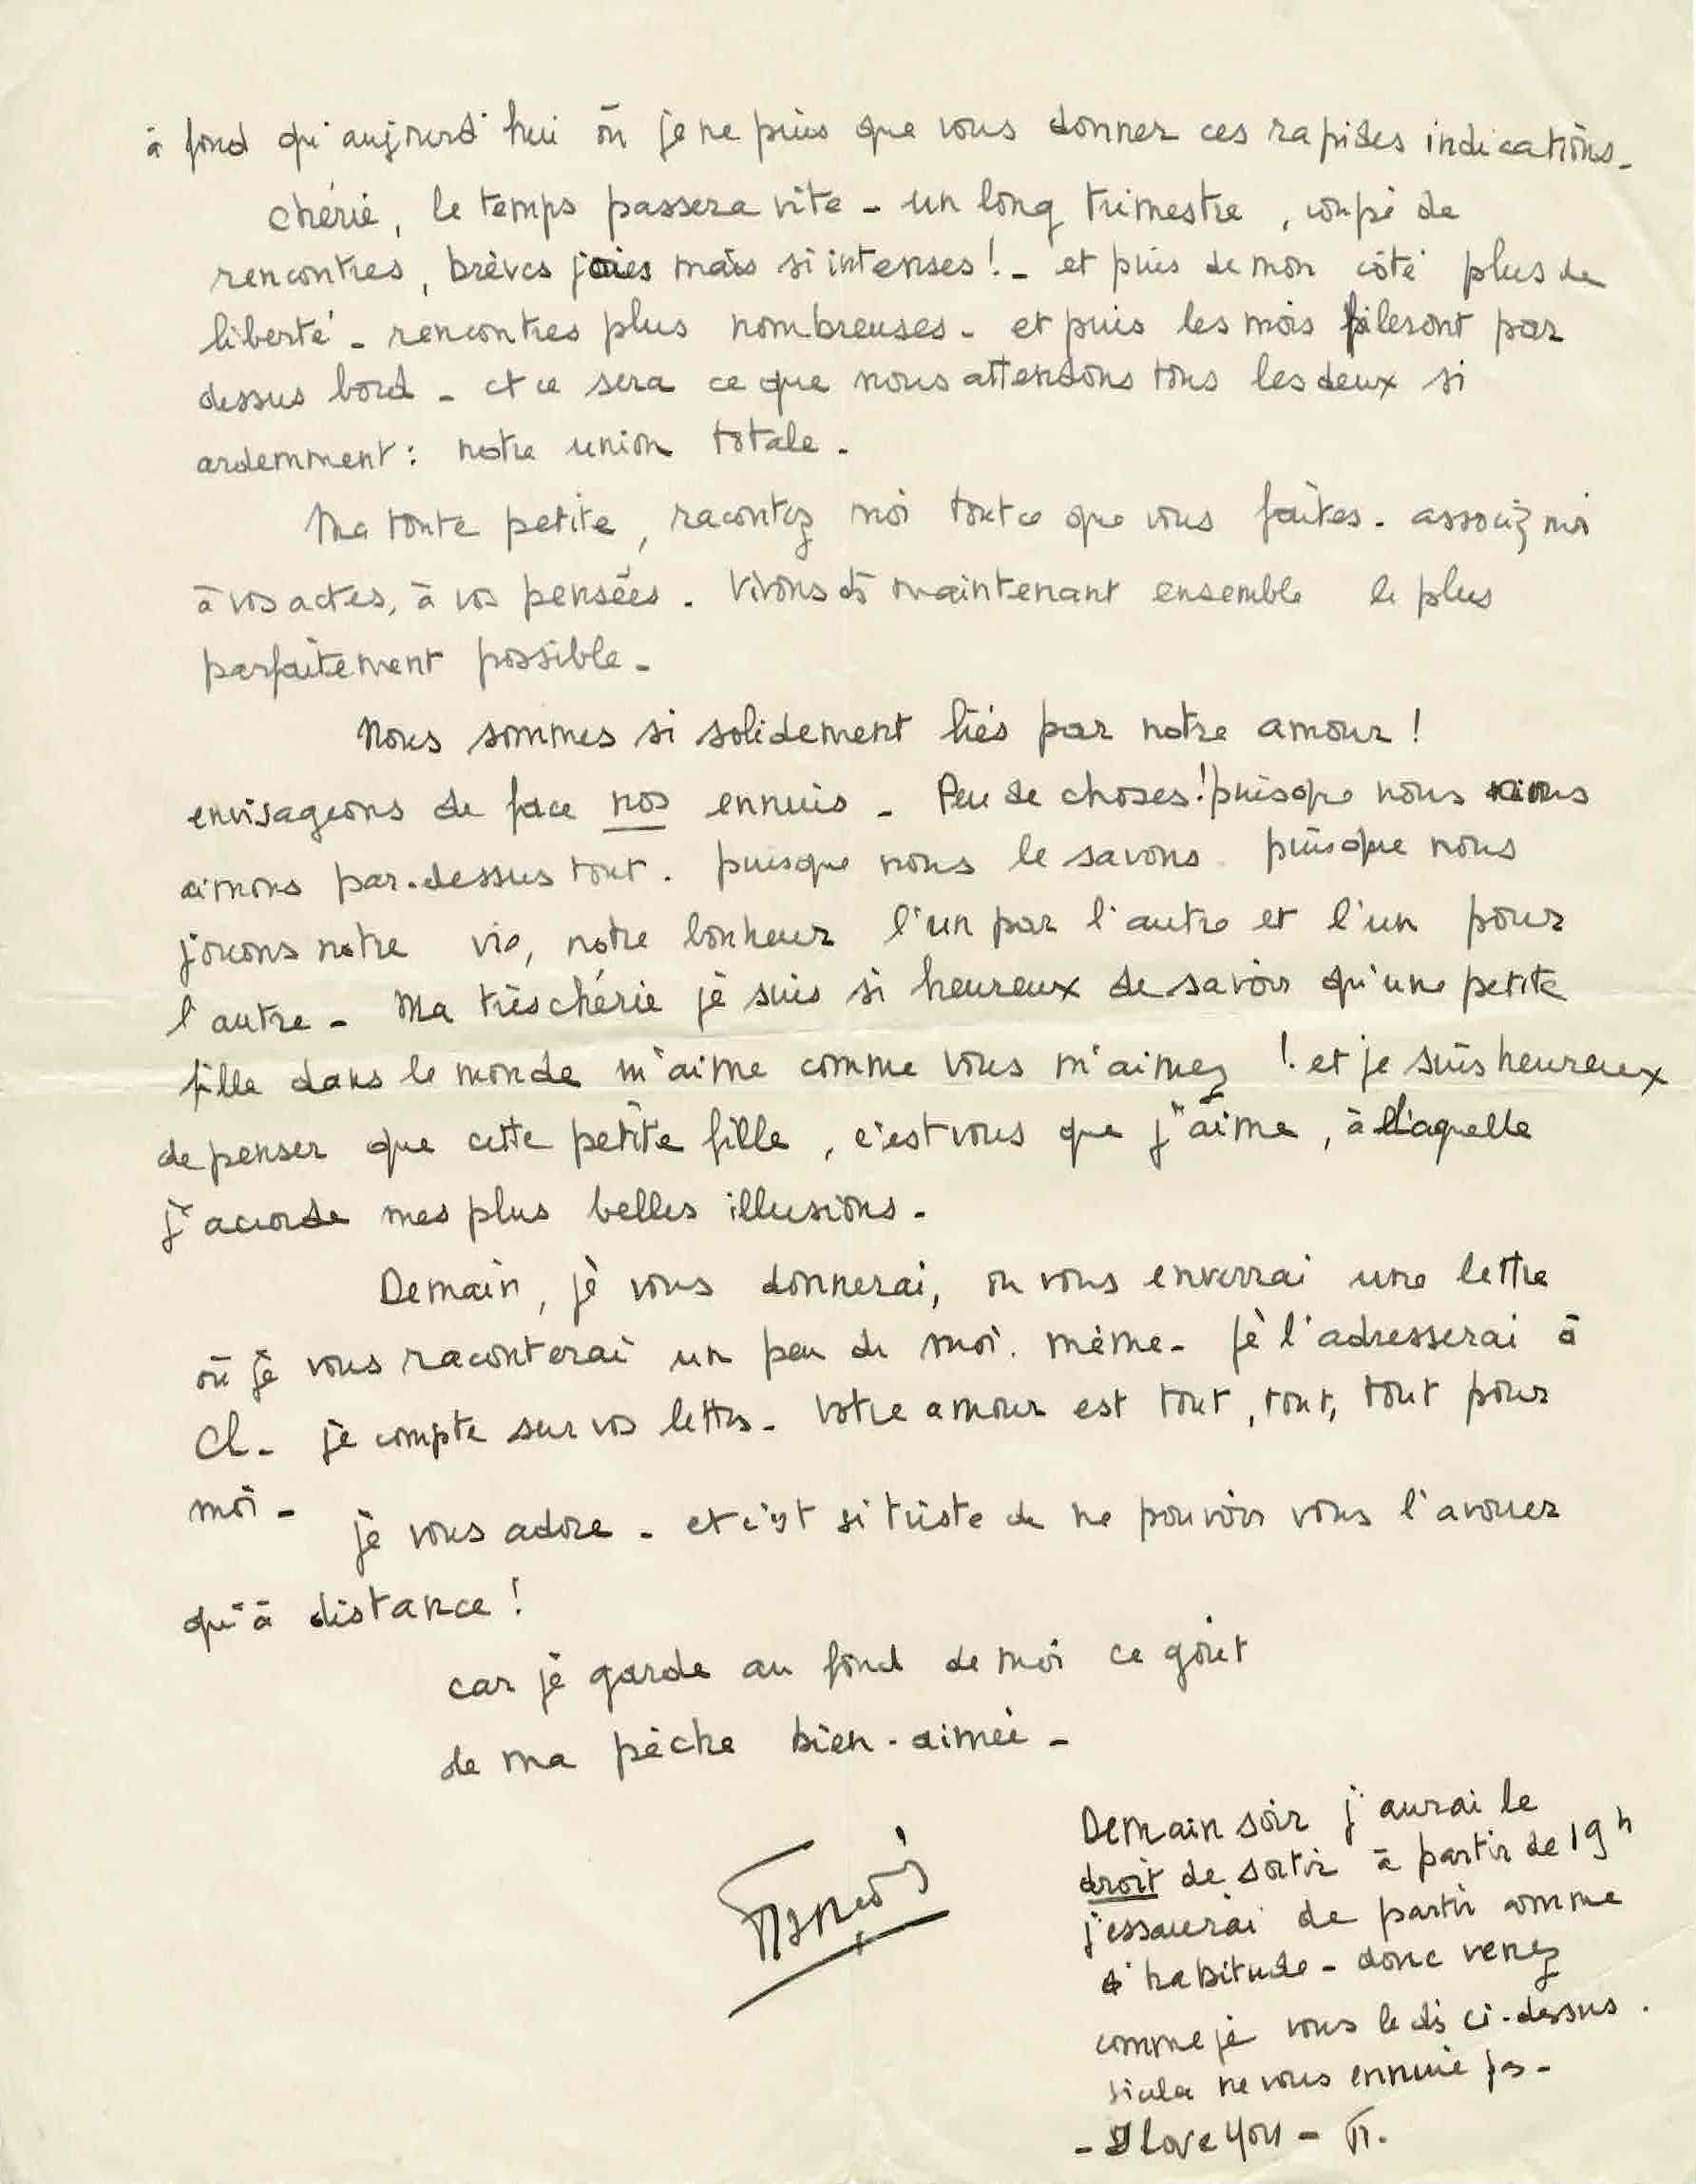 à fond qu'aujourd'hui où je ne puis que vous donner ces rapides indications -
chérie, le temps passera vite - un long trimestre, coupé de
rencontres, brèves joies mais si intenses! - et puis de mon côté plus de
liberté - rencontres plus nombreuses - et puis les mois fileront par
dessus bord - et ce sera ce que nous attendons tous les deux si
ardemment : notre union totale -
Ma toute petite, racontez moi tout ce que vous faites - associez moi
à vos actes, à vos pensées. Vivons dès maintenant ensemble le plus
parfaitement possible -
Nous sommes si solidement liés par notre amour !
envisageons de face nos ennuis - Peu de choses! puisque nous nous
aimons par-dessus tout. puisque nous le savons. puisque nous
jouons notre vie, notre bonheur l'un par l'autre et l'un pour
l'autre - Ma très chérie je suis si heureux de savoir qu'une petite
fille dans le monde m'aime comme vous m'aimez ! et je suis heureux
de penser que cette petite fille, c'est vous que j'aime, à laquelle
j'accorde mes plus belles illusions -
Demain, je vous donnerai, ou vous enverrai une lettre
où je vous raconterai un peu de moi-même - je l'adresserai à
Cl - je compte sur vos lettres - Votre amour est tout, tout, tout pour
moi - je vous adore - et c'est si triste de ne pouvoir vous l'avouer
qu'à distance !
car je garde au fond de moi ce goût
de ma pêche bien-aimée -
Demain soir j'aurai le
droit de sortir à partir de 19 h
j'essaierai de partir comme
d'habitude - donc venez
comme je vous le dis ci-dessus.
si cela ne vous ennuie pas -
- I love you - F.